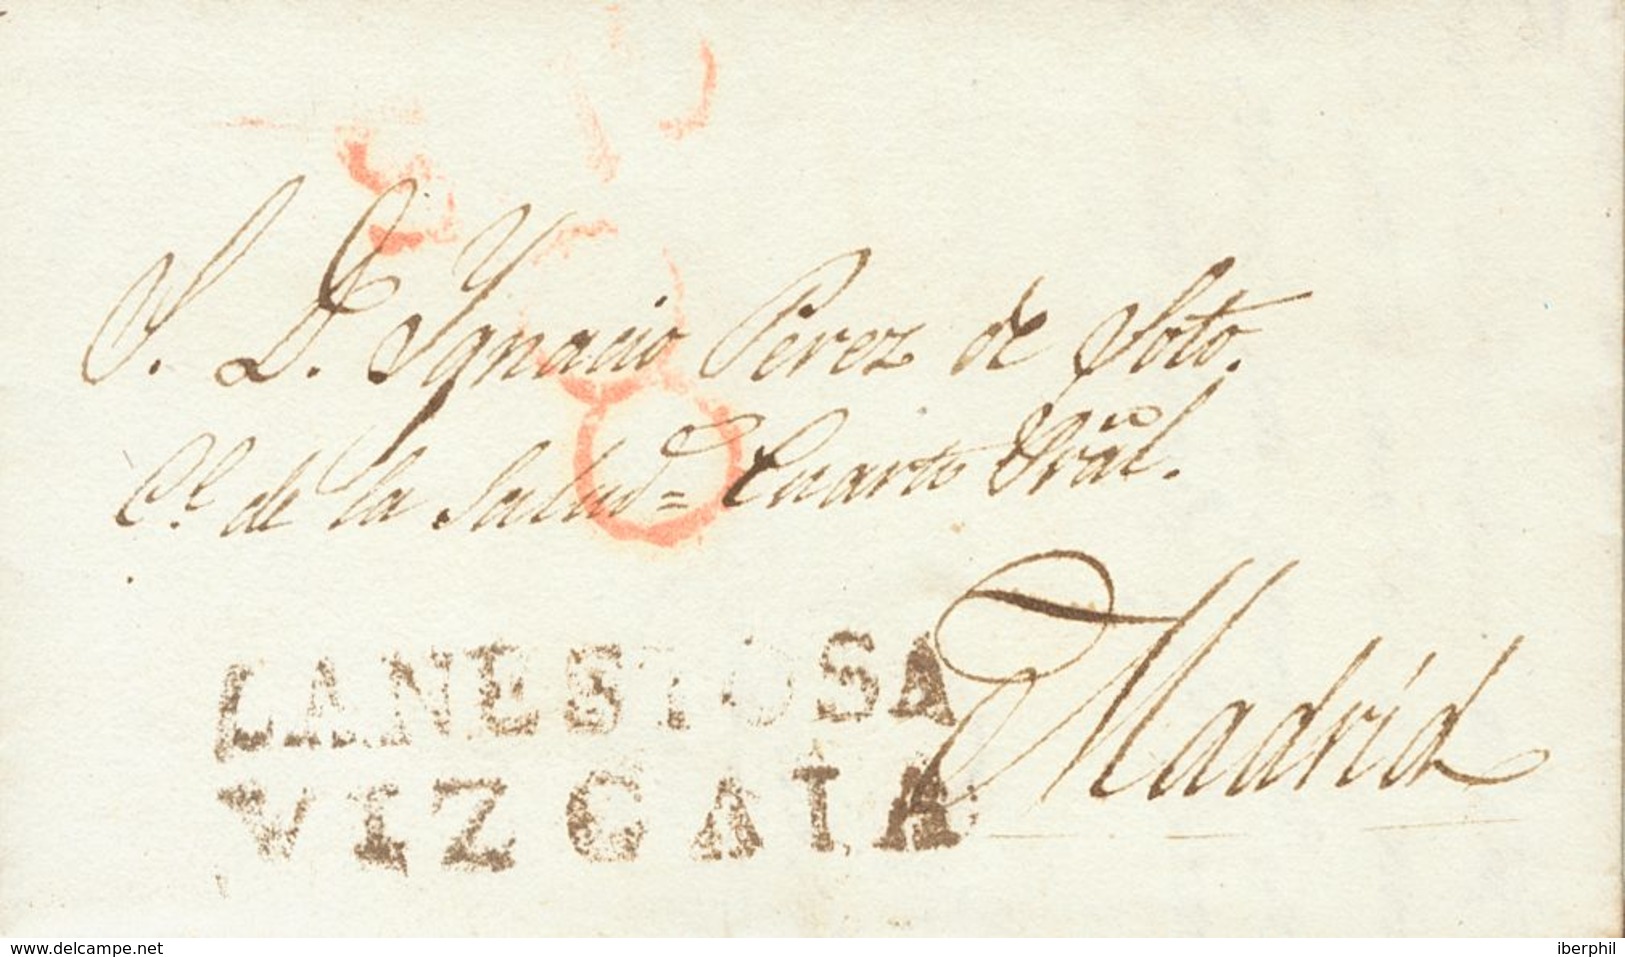 S. D. Ygnacio Perez de Soto.
Cl. de la Salud = Cuarto Pral.
Madrid
LANESTOSA
VIZCAIA
www.delcampe.net
iberphil